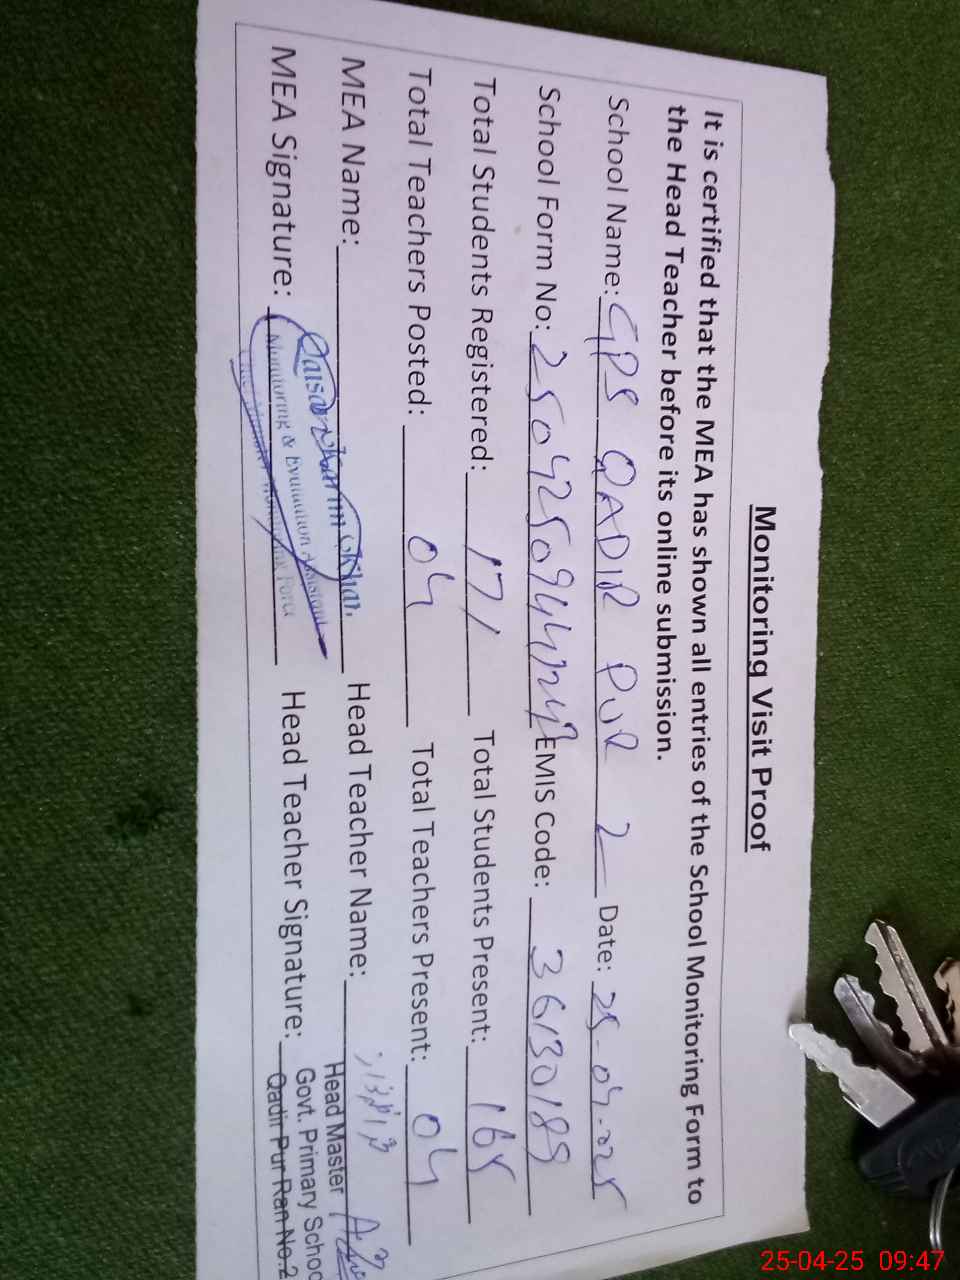 Monitoring Visit Proof
It is certified that the MEA has shown all entries of the School Monitoring Form to
the Head Teacher before its online submission.
School Name: GPS QADIR PUR 2 Date: 25-04-025
School Form No: EMIS Code: 36130188
Total Students Registered: 171 Total Students Present: 165
Total Teachers Posted: 04 Total Teachers Present: 04
MEA Name: Head Teacher Name:
MEA Signature: Head Teacher Signature:
Qaisar Karim Khan
Monitoring & Evaluation Assistant
Head Master
Govt. Primary School
Qadir Pur Ran No.2
25-04-25 09:47